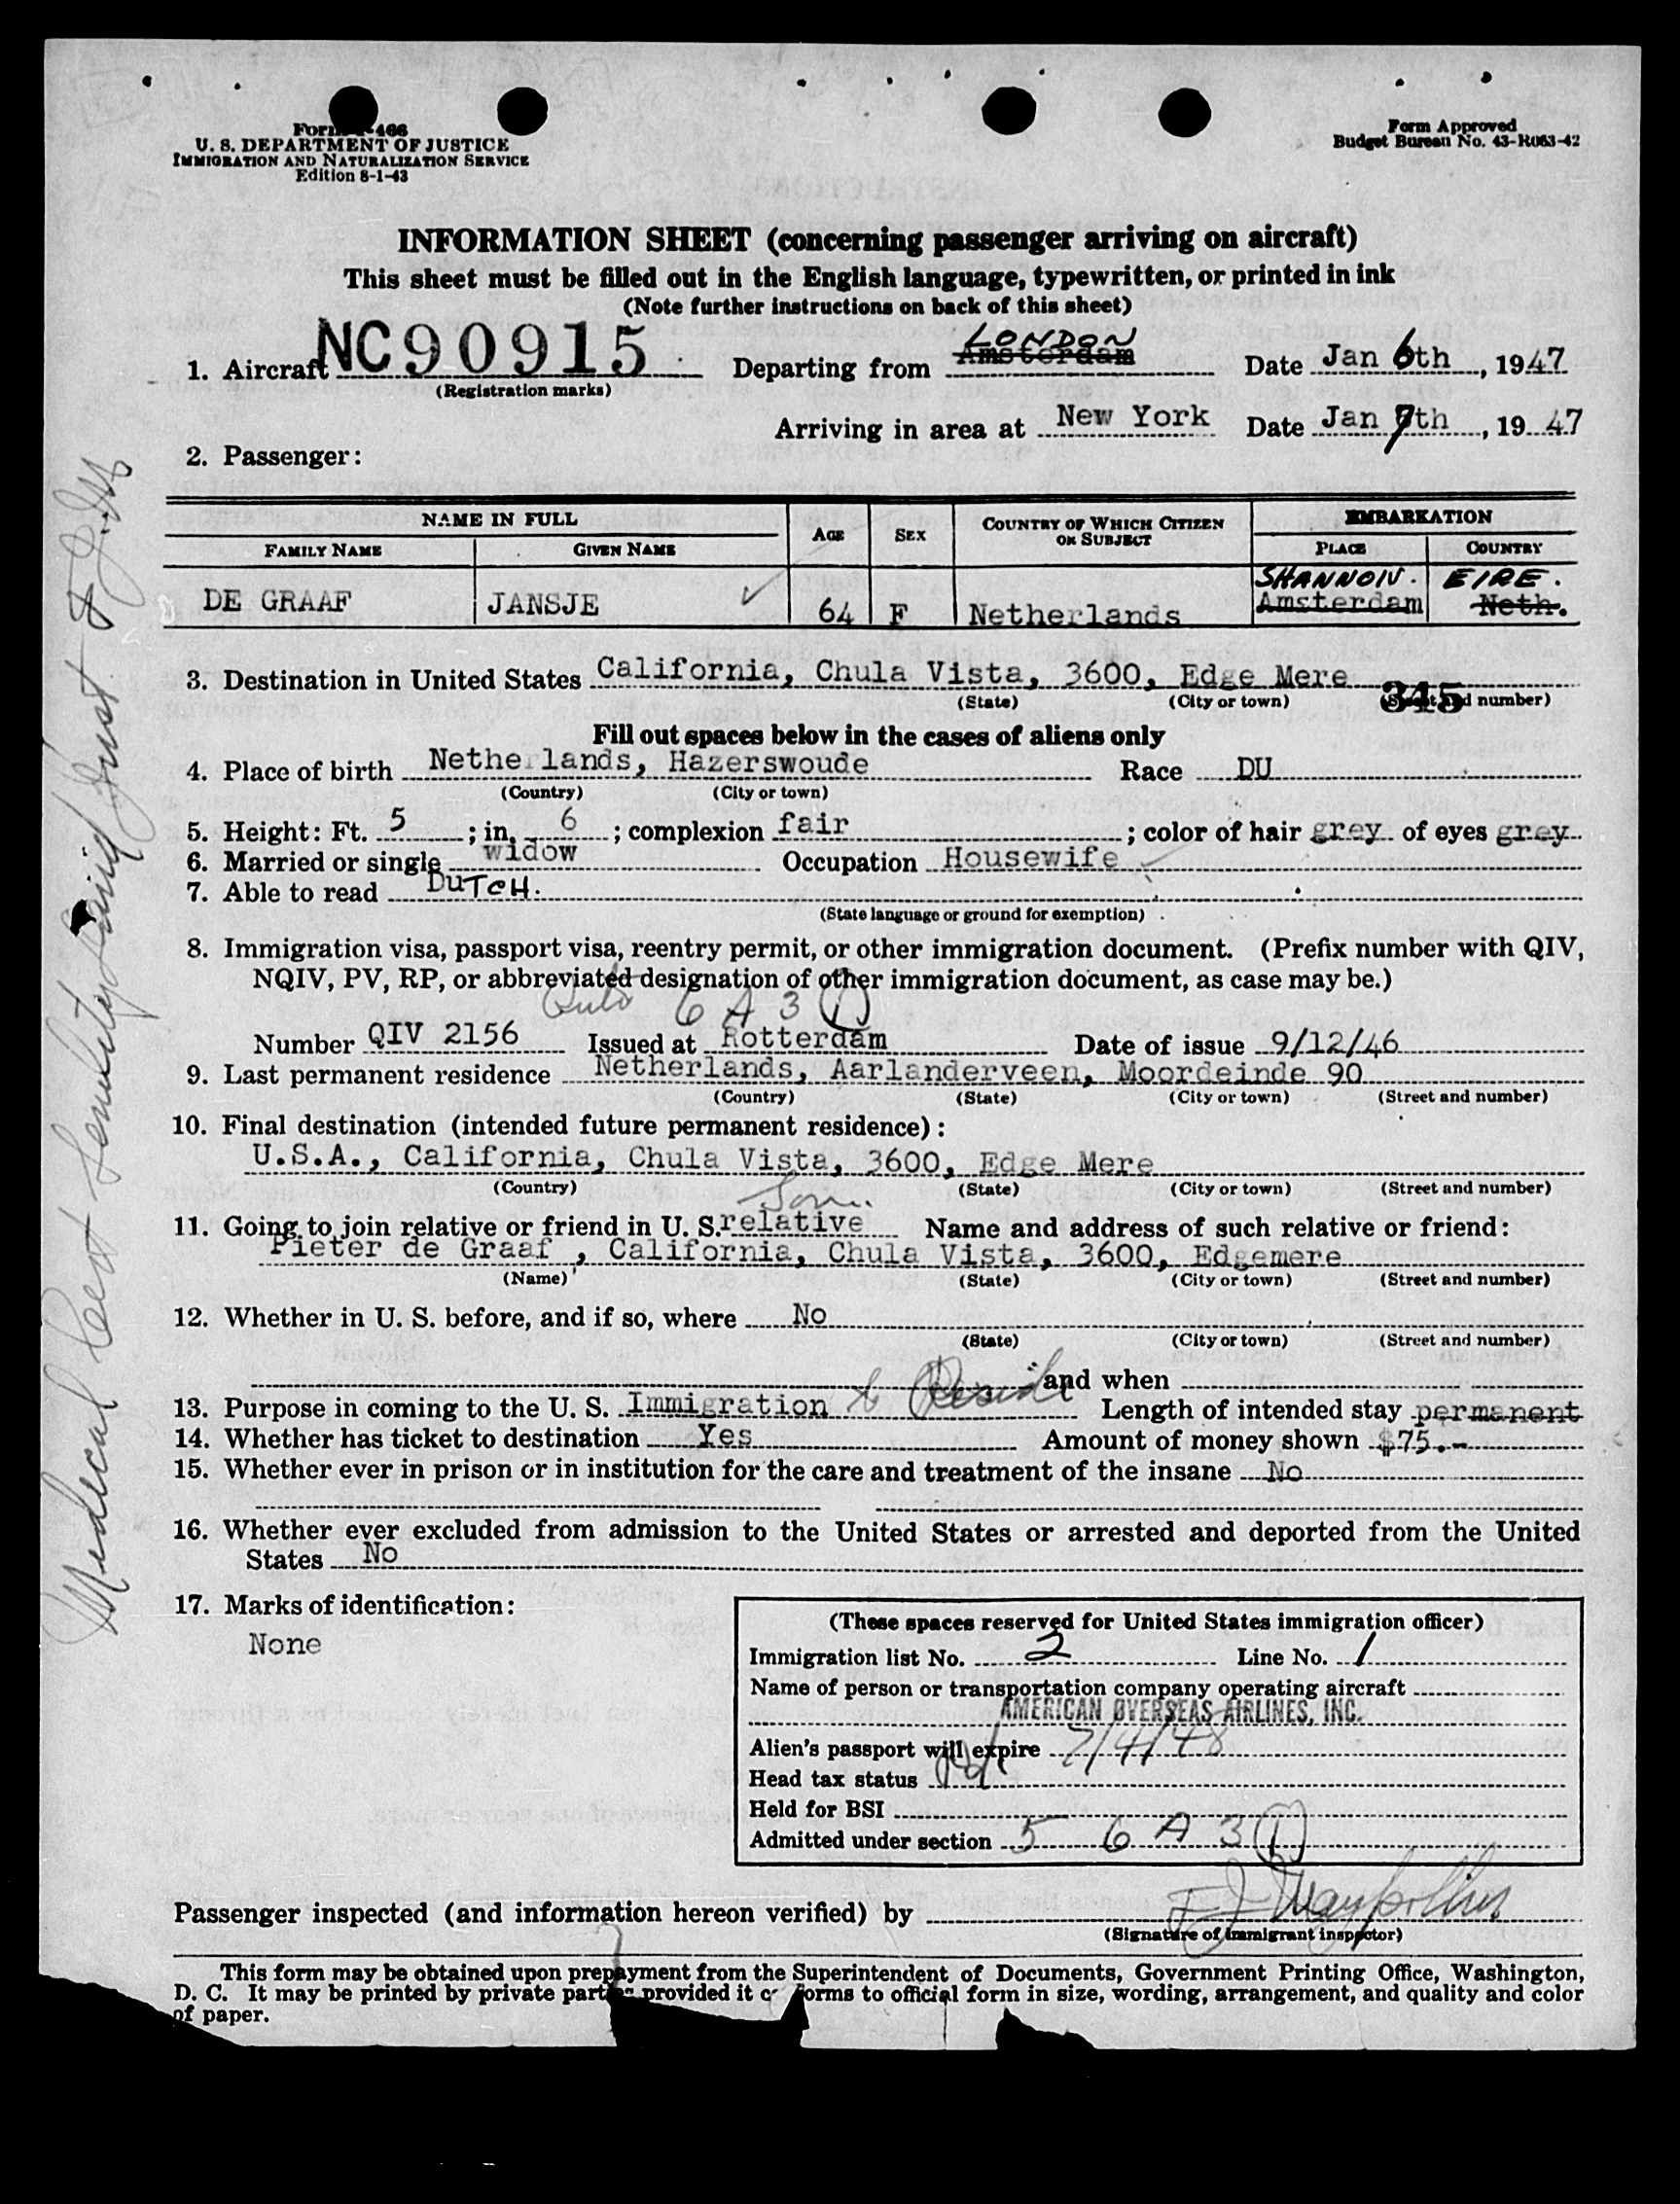 Form I-466
U. S. DEPARTMENT OF JUSTICE
IMMIGRATION AND NATURALIZATION SERVICE
Edition 8-1-43
Form Approved
Budget Bureau No. 43-R063-42
INFORMATION SHEET (concerning passenger arriving on aircraft)
This sheet must be filled out in the English language, typewritten, or printed in ink
(Note further instructions on back of this sheet)
LONDON
1. Aircraft NC90915 Departing from Amsterdam Date Jan 6th, 1947
(Registration marks)
Arriving in area at New York Date Jan 7th, 1947
2. Passenger:
NAME IN FULL AGE SEX COUNTRY OF WHICH CITIZEN OR SUBJECT EMBARKATION
FAMILY NAME GIVEN NAME PLACE COUNTRY
SHANNON. EIRE.
DE GRAAF JANSJE 64 F Netherlands Amsterdam Neth.
3. Destination in United States California, Chula Vista, 3600, Edge Mere
345
(State) (City or town) (Street and number)
Fill out spaces below in the cases of aliens only
4. Place of birth Netherlands, Hazerswoude Race DU
(Country) (City or town)
5. Height: Ft. 5; in. 6; complexion fair; color of hair grey of eyes grey
6. Married or single widow Occupation Housewife
7. Able to read DUTCH.
(State language or ground for exemption)
8. Immigration visa, passport visa, reentry permit, or other immigration document. (Prefix number with QIV,
NQIV, PV, RP, or abbreviated designation of other immigration document, as case may be.)
6 A 3 (1)
Number QIV 2156 Issued at Rotterdam Date of issue 9/12/46
9. Last permanent residence Netherlands, Aarlanderveen, Moordeinde 90
(Country) (State) (City or town) (Street and number)
10. Final destination (intended future permanent residence):
U.S.A., California, Chula Vista, 3600, Edge Mere
(Country) (State) (City or town) (Street and number)
Son.
11. Going to join relative or friend in U. S. relative Name and address of such relative or friend:
Pieter de Graaf, California, Chula Vista, 3600, Edgemere
(Name) (State) (City or town) (Street and number)
12. Whether in U. S. before, and if so, where No
(State) (City or town) (Street and number)
and when
13. Purpose in coming to the U. S. Immigration to Reside Length of intended stay permanent
14. Whether has ticket to destination Yes Amount of money shown $75.-
15. Whether ever in prison or in institution for the care and treatment of the insane No
16. Whether ever excluded from admission to the United States or arrested and deported from the United
States No
17. Marks of identification:
None
(These spaces reserved for United States immigration officer)
Immigration list No. 2 Line No. 1
Name of person or transportation company operating aircraft
AMERICAN OVERSEAS AIRLINES, INC.
Alien's passport will expire 7/4/48
Head tax status
Held for BSI
Admitted under section 5 6 A 3 (1)
Passenger inspected (and information hereon verified) by
(Signature of immigrant inspector)
This form may be obtained upon prepayment from the Superintendent of Documents, Government Printing Office, Washington,
D. C. It may be printed by private parties provided it conforms to official form in size, wording, arrangement, and quality and color
of paper.
Medical Cert Senility